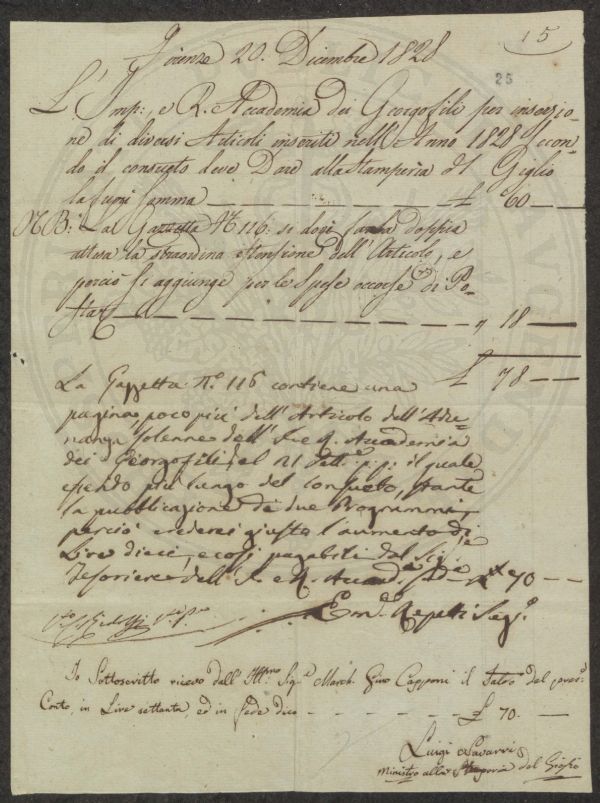 15
Firenze 20. Dicembre 1828
25
L'Imp: e R. Accademia dei Georgofili per inserzio-
ne di diversi Articoli inseriti nell'Anno 1828 secon-
do il consueto deve Dare alla Stamperia del Giglio
la somma £ 60
NB: La Gazzetta N. 116: si doppia
attesa la straordina estensione dell'Articolo, e
perciò si aggiunge per le Spese occorse di Po-
sta " 18
£ 78
La Gazzetta N.° 116 contiene una
pagina, poco più dell'Articolo dell'Adu-
nanza solenne dell'I. e R. Accademia
dei Georgofili del 21 Sett.e p:p: il quale
essendo più lungo del consueto, stante
la pubblicazione di due Programmi,
perciò crederei giusto l'aumento di
Lire dieci, e così pagabili dal Sig.
Tesoriere dell'I. e R. Accad. £ 70
Ridolfi
Em. Repetti Seg.
Io Sottoscritto ricevo dall'Ill.mo Sig.e March. Gino Capponi il Saldo del pres:
Conto, in Lire settanta, ed in fede dico £ 70.
Luigi
Ministro alla Stamperia del Giglio